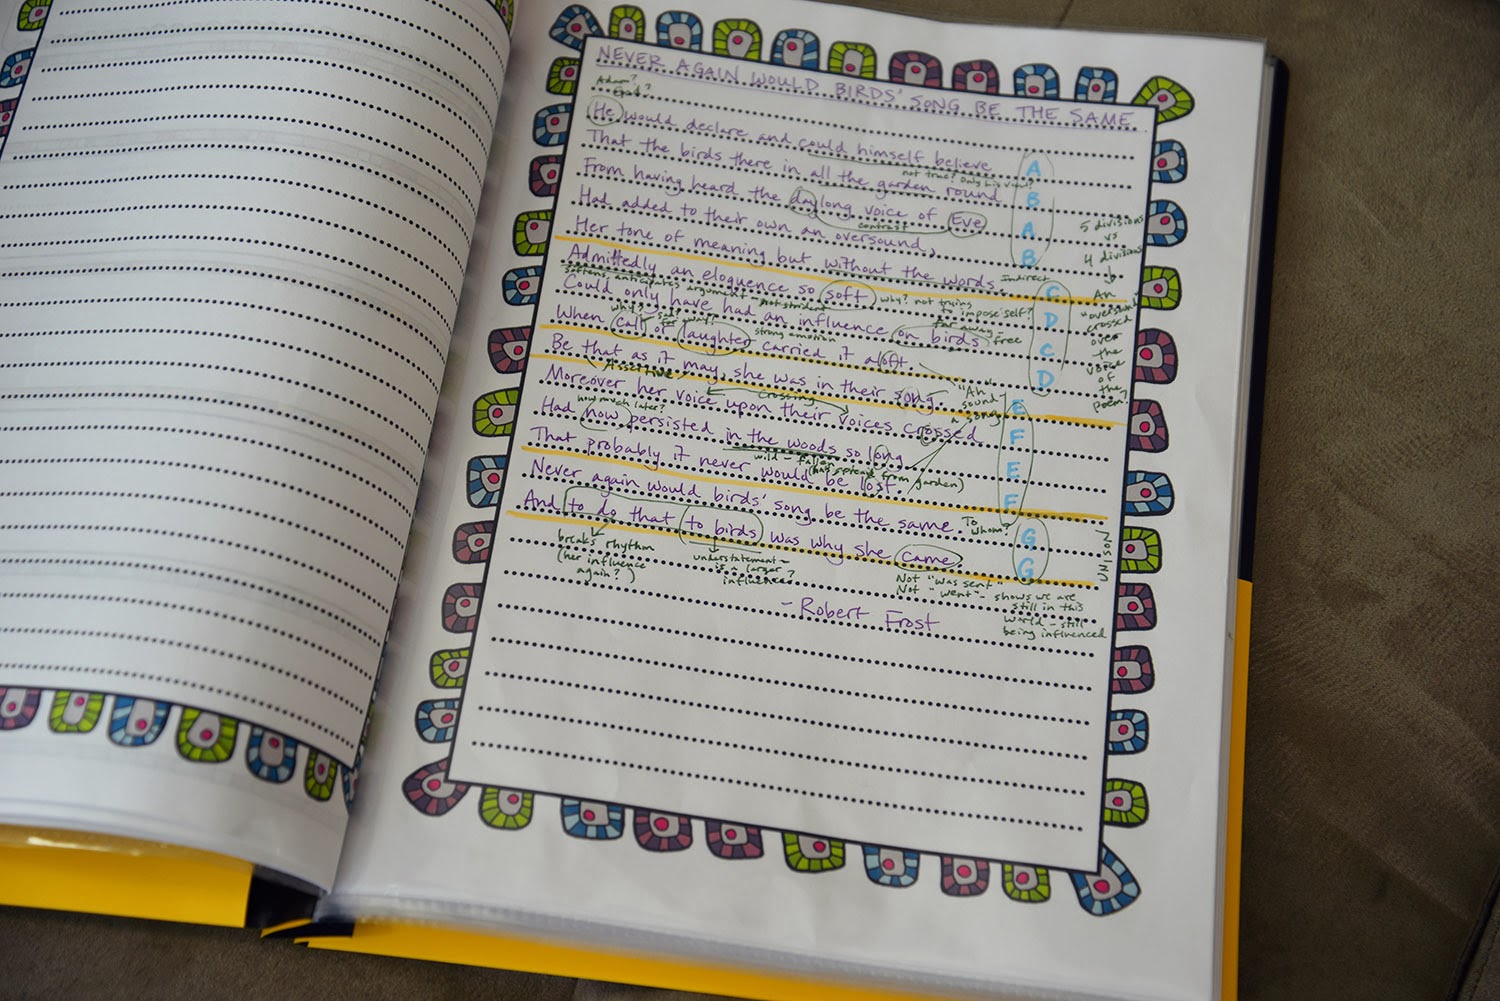 NEVER AGAIN WOULD BIRDS' SONG BE THE SAME
Adam?
God?
He would declare and could himself believe
not true? Only his view?
That the birds there in all the garden round
From having heard the daylong voice of Eve
contrast
Had added to their own an oversound,
Her tone of meaning but without the words.
Indirect
Admittedly an eloquence so soft
softens, anticipates argument - not strident
why? not trying
to impose self?
Could only have had an influence on birds
far away - free
why? soft
When call or laughter carried it aloft.
strong emotion
Be that as it may, she was in their song.
Assertive
Moreover her voice upon their voices crossed
crossing
"Ah"
sound
song
how much later?
Had now persisted in the woods so long
wild - fallen
(has spread from garden)
That probably it never would be lost.
Never again would birds' song be the same.
To
whom?
And to do that to birds was why she came.
breaks rhythm
(her influence
again?)
understatement -
is a larger
influence?
Not "was sent"
Not "went" - shows we are
still in this
world - still
being influenced
- Robert Frost
A
B
A
B
C
D
C
D
E
F
E
F
G
G
5 divisions
vs
4 divisions
An
"oversound"
crossed
over
the
voice
of
the
Poem?
UNISON